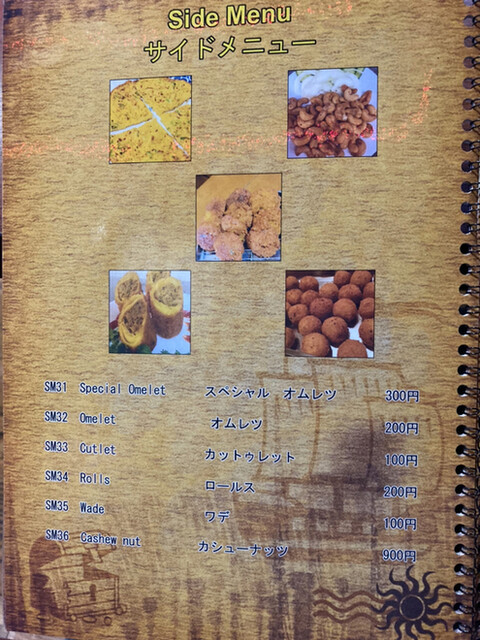 Side Menu
サイドメニュー
SM31 Special Omelet スペシャル オムレツ 300円
SM32 Omelet オムレツ 200円
SM33 Cutlet カットゥレット 100円
SM34 Rolls ロールス 200円
SM35 Wade ワデ 100円
SM36 Cashew nut カシューナッツ 900円